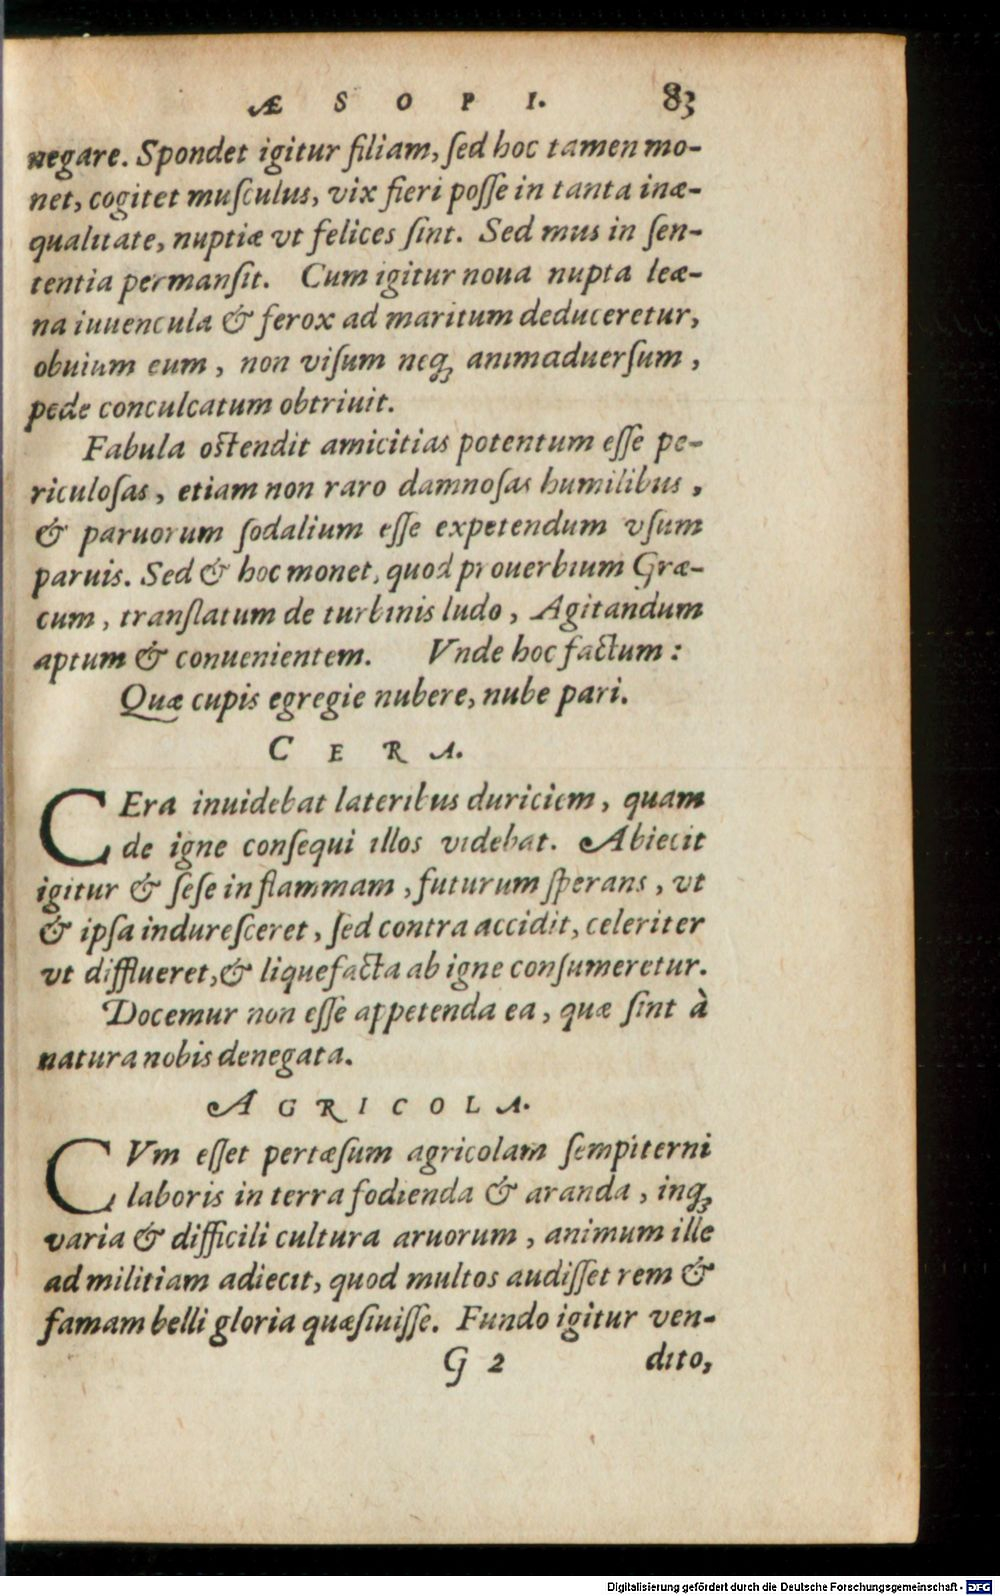 ÆSOPI. 83
negare. Spondet igitur filiam, ſed hoc tamen mo-
net, cogitet muſculus, vix fieri poſſe in tanta inæ-
qualitate, nuptiæ vt felices ſint. Sed mus in ſen-
tentia permanſit. Cum igitur noua nupta leæ-
na iuuencula & ferox ad maritum deduceretur,
obuium eum, non viſum neq; animaduerſum,
pede conculcatum obtriuit.
Fabula oſtendit amicitias potentum eſſe pe-
riculoſas, etiam non raro damnoſas humilibus,
& paruorum ſodalium eſſe expetendum vſum
paruis. Sed & hoc monet, quod prouerbium Græ-
cum, tranſlatum de turbinis ludo, Agitandum
aptum & conuenientem. Vnde hoc factum:
Quæ cupis egregie nubere, nube pari.
CERA.
CEra inuidebat lateribus duriciem, quam
de igne conſequi illos videbat. Abiecit
igitur & ſeſe in flammam, futurum ſperans, vt
& ipſa indureſceret, ſed contra accidit, celeriter
vt difflueret, & liquefacta ab igne conſumeretur.
Docemur non eſſe appetenda ea, quæ ſint à
natura nobis denegata.
AGRICOLA.
CVm eſſet pertæſum agricolam ſempiterni
laboris in terra fodienda & aranda, inq;
varia & difficili cultura aruorum, animum ille
ad militiam adiecit, quod multos audiſſet rem &
famam belli gloria quæſiuiſſe. Fundo igitur ven-
G 2 dito,
Digitalisierung gefördert durch die Deutsche Forschungsgemeinschaft - DFG